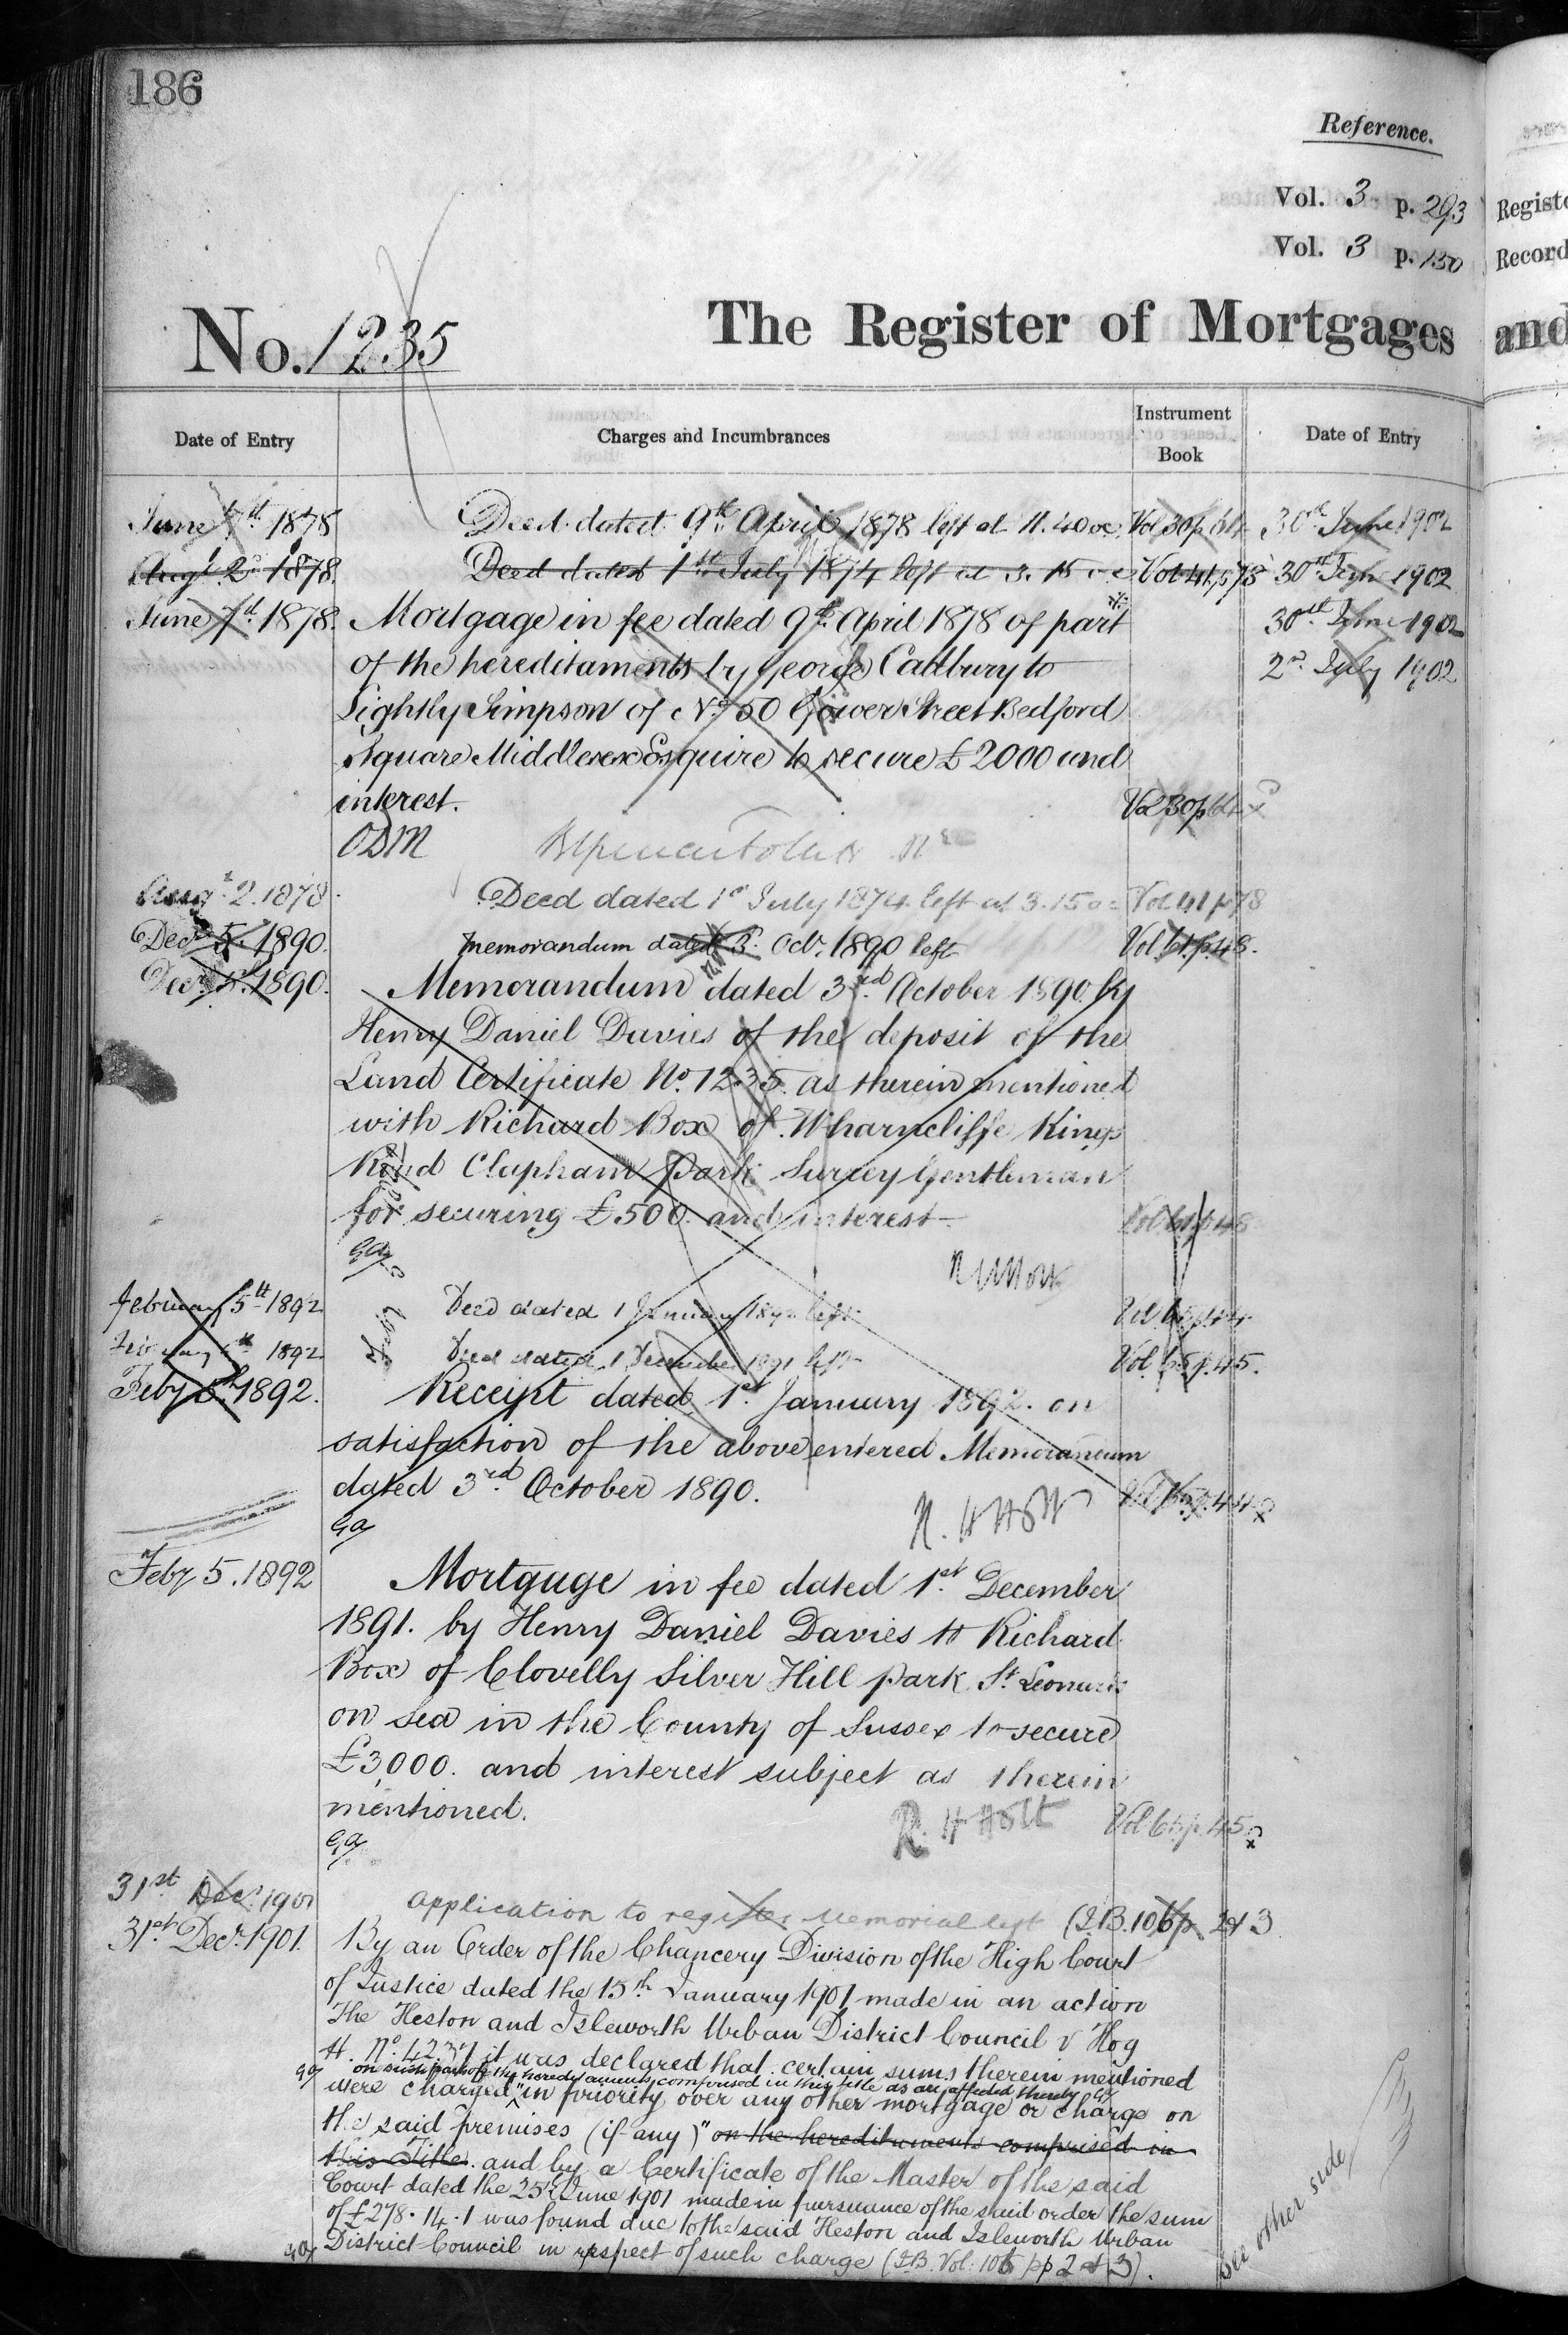 186
Reference.
Vol. 3 p. 293
Vol. 3 p. 130
No. 1235
The Register of Mortgages
Date of Entry
Charges and Incumbrances
Instrument Book
Date of Entry
June 7th 1878
Deed dated 9th April 1878 left at 11.40 oc
Vol 30 p 64
30th June 1902
Augt 2d 1878.
Deed dated 1st July 1874 left at 3.15 oc
Vol 41 p 78
30th June 1902
June 7th 1878.
Mortgage in fee dated 9th April 1878 of part
30th June 1902
of the hereditaments by George Cattbury to
2nd July 1902
Lightly Simpson of No. 50 Gower Street Bedford
Square Middlesex Esquire to secure £2000 and
interest.
Vol 30 p 64
Augt 2. 1878.
Deed dated 1st July 1874 left at 3.15 oc
Vol 41 p 78
Decr 5. 1890.
Memorandum dated 3d Octr 1890 left
Vol. 61 p. 48.
Decr 5. 1890.
Memorandum dated 3rd October 1890 by
Henry Daniel Davies of the deposit of the
Land Certificate No. 1235 as therein mentioned
with Richard Box of Wharncliffe Kings
Road Clapham Park Surrey Gentleman
for securing £500. and interest
Vol 61 p 48
Ga
February 5th 1892
Deed dated 1 January 1892 left
Vol 65 p 44
February 5th 1892
Deed dated 1 December 1891 left
Vol. 65 p. 45.
Feby 5th 1892.
Receipt dated 1st January 1892. on
satisfaction of the above entered Memorandum
dated 3rd October 1890.
Vol 65 p. 44
Ga
R. H Holt
Feby 5. 1892
Mortgage in fee dated 1st December
1891. by Henry Daniel Davies to Richard
Box of Clovelly Silver Hill Park St Leonards
on Sea in the County of Sussex to secure
£3,000. and interest subject as therein
mentioned.
R. H Holt
Vol 65 p. 45
Ga
31st Decr 1901
Application to register Memorial left
(I.B. 106 p 2 & 3
31st Decr 1901.
By an Order of the Chancery Division of the High Court
of Justice dated the 15th January 1901 made in an action
The Heston and Isleworth Urban District Council v Hog
it was declared that certain sums therein mentioned
on such part of the hereditaments comprised in this title as are affected thereby
were charged "in priority over any other mortgage or charge on
the said premises (if any)" on the hereditaments comprised in
this Title. and by a Certificate of the Master of the said
Court dated the 25th June 1901 made in pursuance of the said order the sum
of £278.14.1 was found due to the said Heston and Isleworth Urban
District Council in respect of such charge (I.B. Vol: 106 pp 2 & 3).
See other side